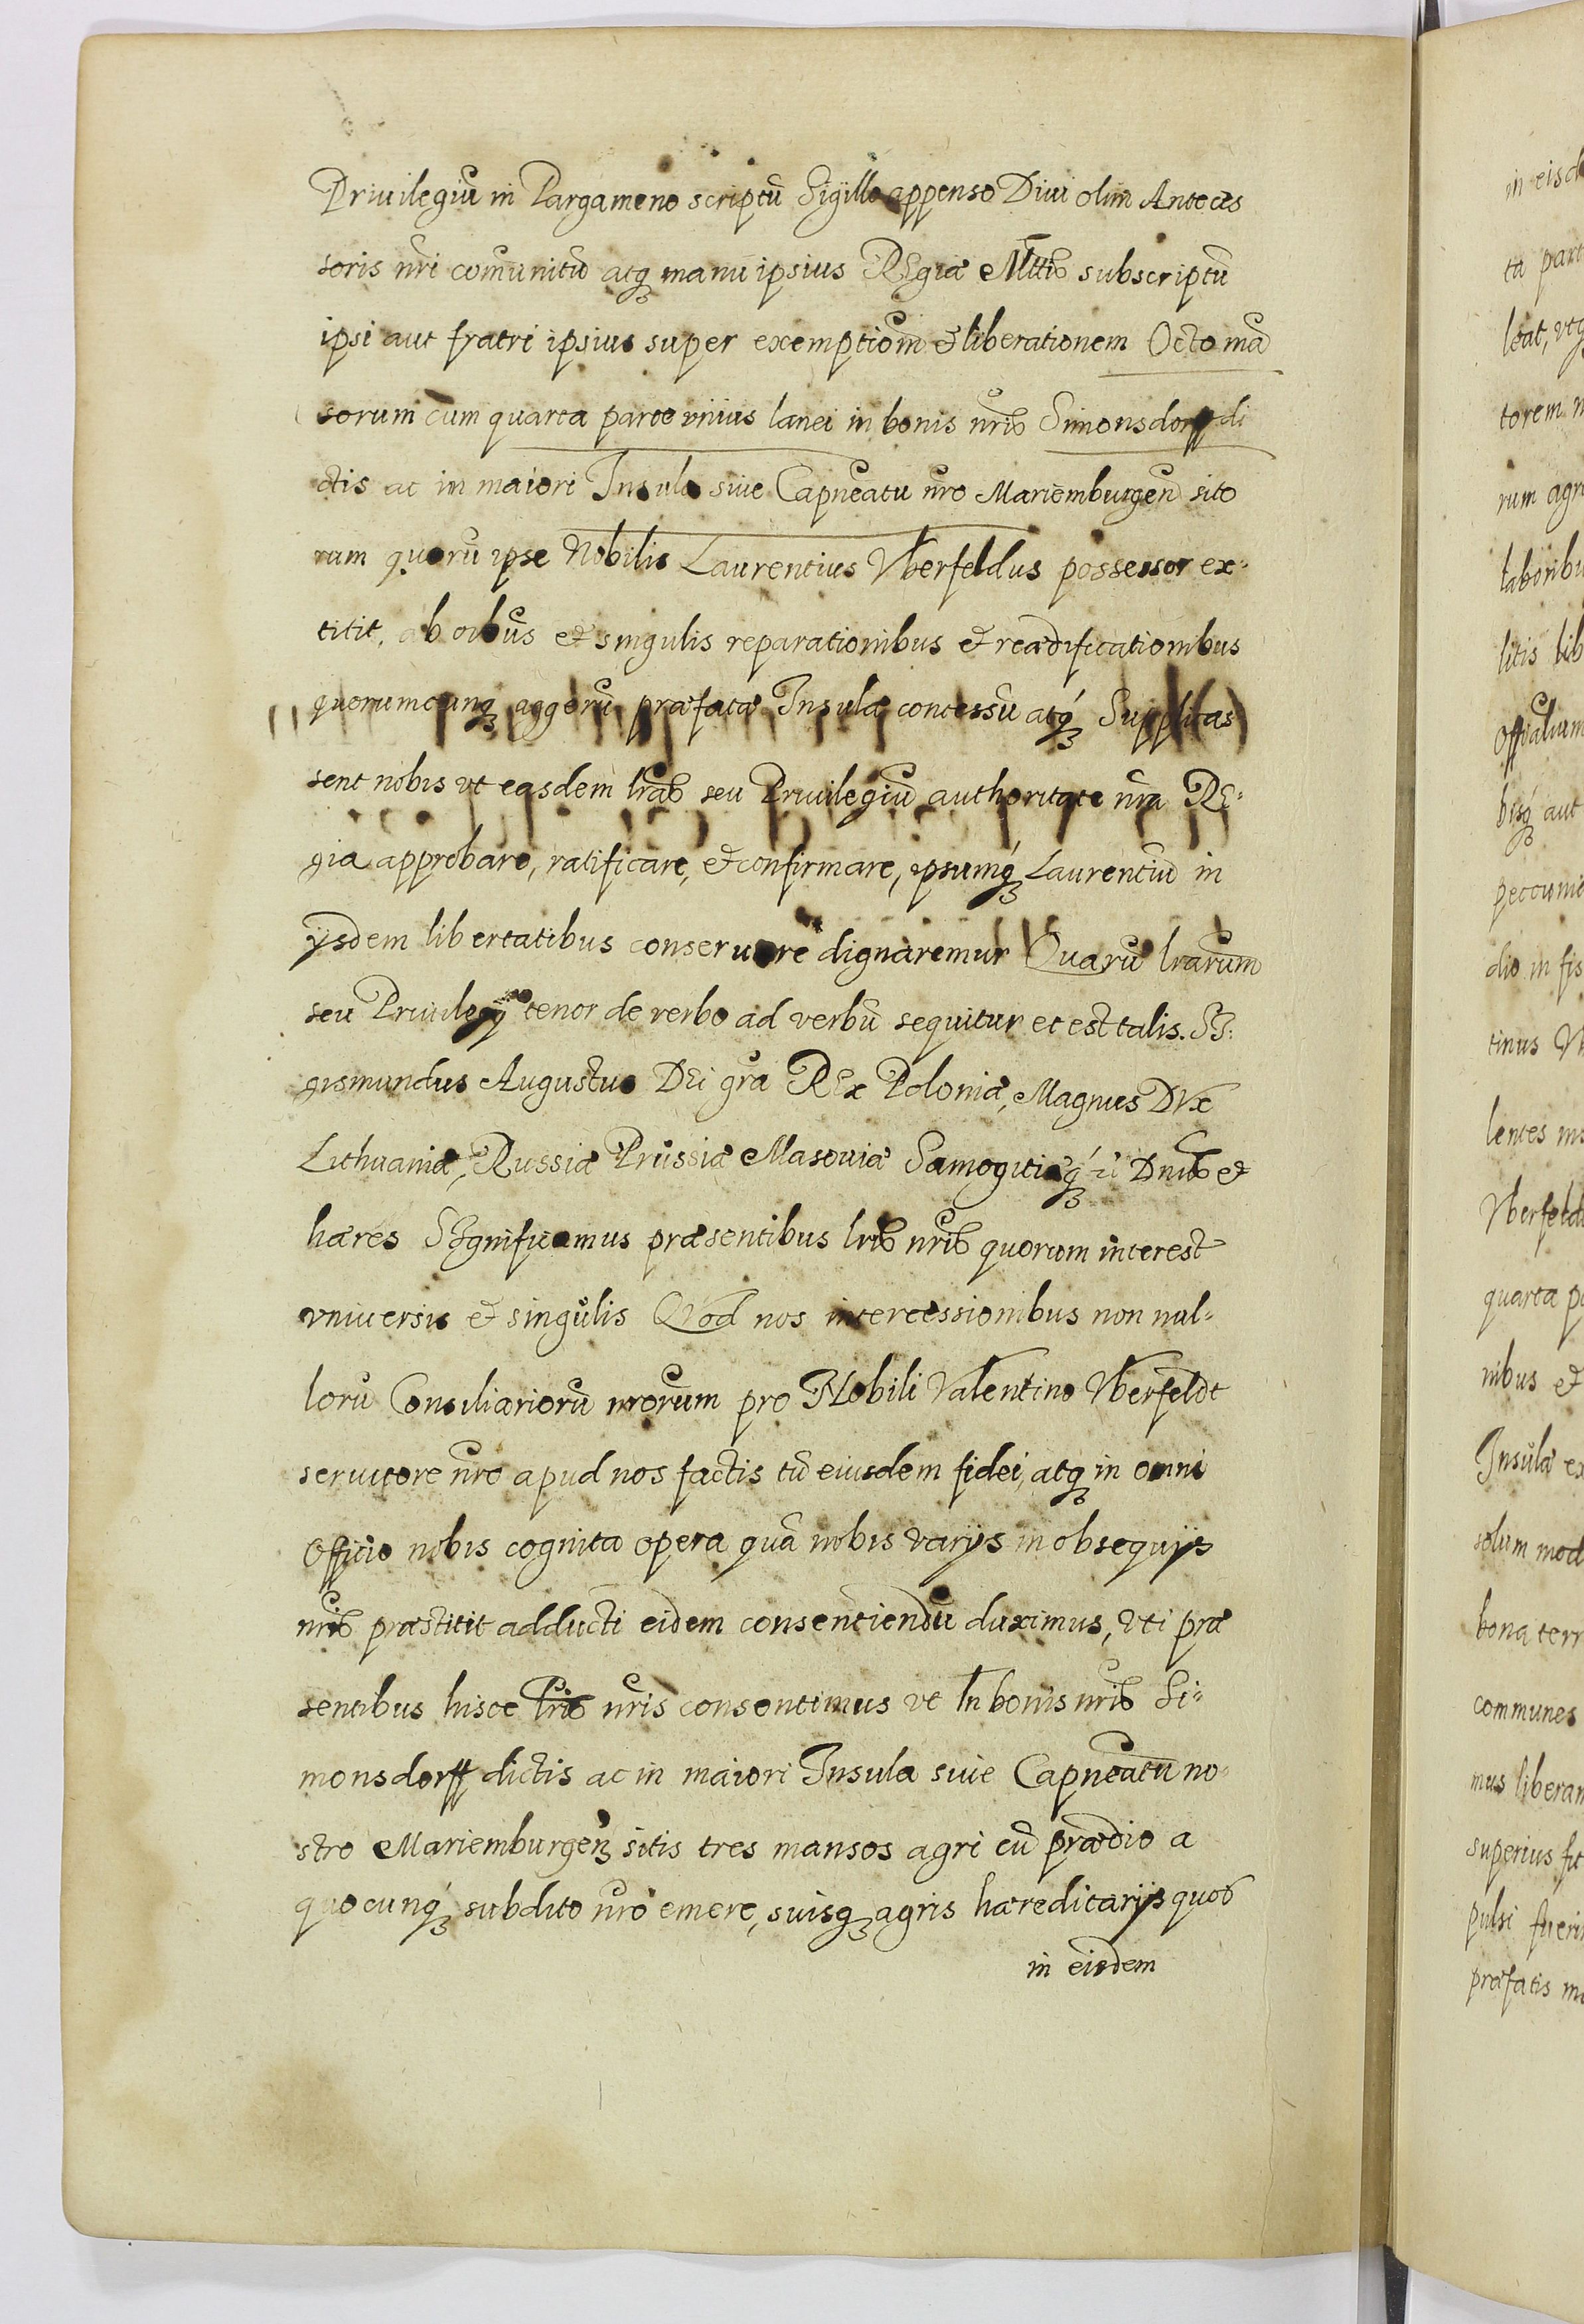 Priuilegiū in Pargameno scriptū Sigillo appenso Diui olim Anteces
soris nr̄i comunitū atq̨ manu ipsius REgiæ Mttis subscriptū
ipsi aut fratri ipsius super exemptiom̄ & liberationem Octo mā
sorum cum quarta parte vnius lanei in bonis nrīs Simonsdorff di
ctis ac in maiori Insula siue Capneatu nrō Mariemburgen̄ sito
rum quorū ipse Nobilis Laurentius Vberfeldus possessor ex-
titit, ab oībus & singulis reparationibus & reædificationibus
quorumcunq̨ aggerū præfatæ Insulæ concessū atq́ Supplicas
sent nobis vt easdem lrās seu Priuilegiū authoritate nrā RE-
gia approbare, ratificare, & confirmare, ipsumq́ Laurentiū in
ijsdem libertatibus conseruare dignaremur Quarū lrārum
seu Priuilegij tenor de verbo ad verbū sequitur et est talis. SI:
gismundus Augustus DEi grā REx Poloniæ, Magnus DVx
Lithuaniæ, Russiæ Prussiæ Masouiæ Samogitiæq́ ꝛc̄ Dnūs &
hæres SIgnificamus præsentibus lrīs nrīs quorum interest
vniuersis & singulis QVod nos intercessionibus non nul-
lorū Consiliariorū nrōrum pro Nobili Valentino Vberfeldt
seruitore nrō apud nos factis tū eiusdem fidei, atq̨ in omni
officio nobis cognita opera quā nobis varijs in obsequijs
nrīs præstitit adducti eidem consentiendū duximus, vti præ
sentibus hisce lrīs nrīs consentimus vt In bonis nrīs Si-
monsdorff dictis ac in maiori Insula siue Capneatu no-
stro Mariemburgen̄ sitis tres mansos agri cū prædio a
quocunq́ subdito nrō emere, suisq̨ agris hæreditarijs quos
in eisdem